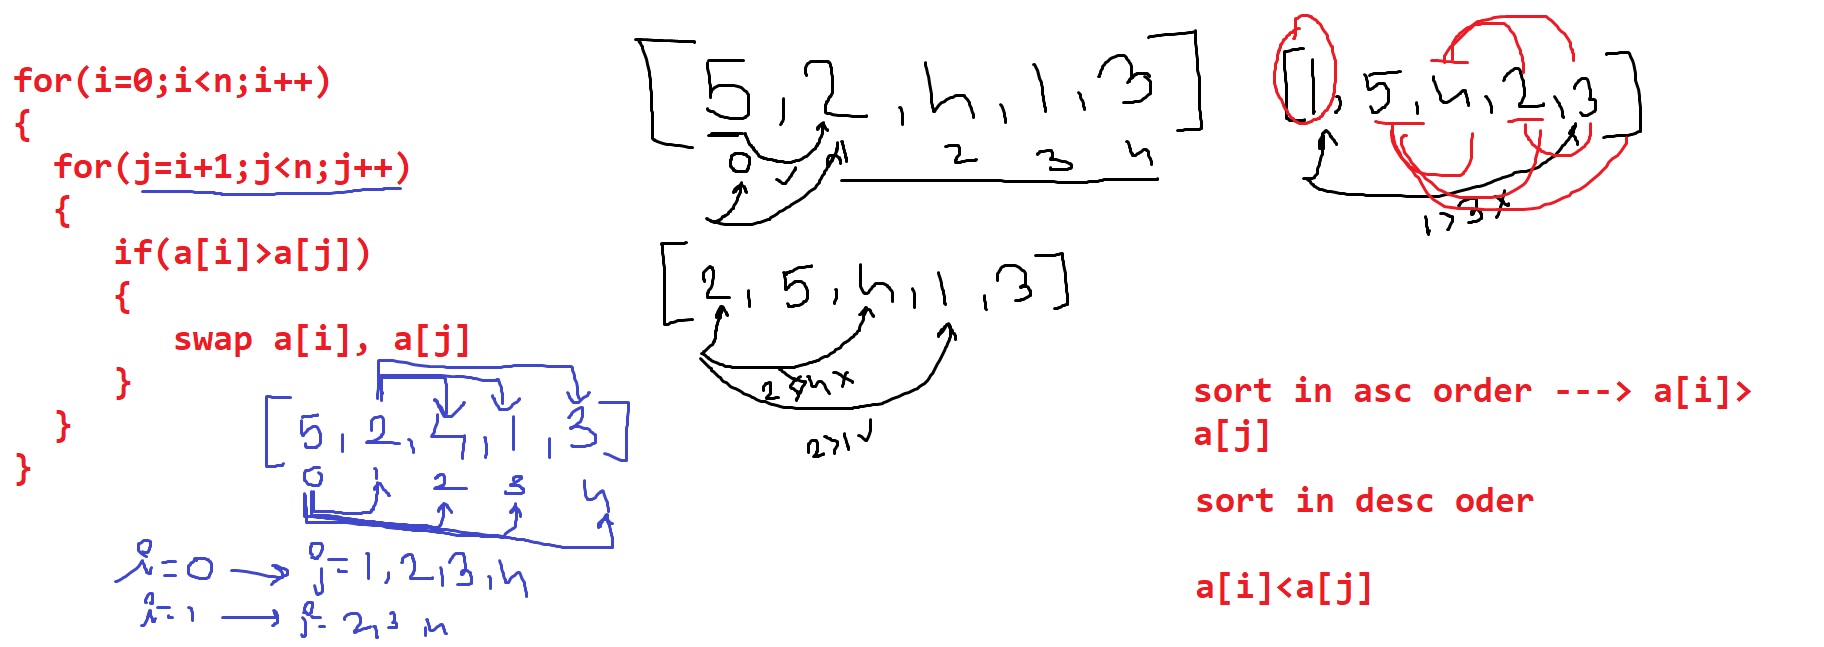 for(i=0;i<n;i++)
{
for(j=i+1;j<n;j++)
{
if(a[i]>a[j])
{
swap a[i], a[j]
}
}
}
[5, 2, 4, 1, 3]
0 1 2 3 4
i=0 → j=1,2,3,4
i=1 → j=2,3 4
[5, 2, 4, 1, 3]
0 1 2 3 4
[2, 5, 4, 1, 3]
2>4 x
2>1 ✓
[1, 5, 4, 2, 3]
1>3 x
sort in asc order ---> a[i]>
a[j]
sort in desc oder
a[i]<a[j]